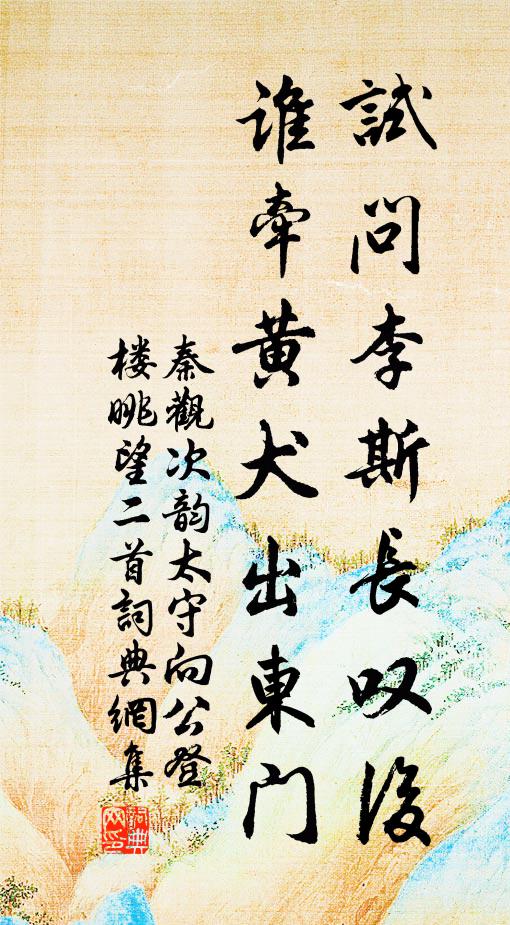 試問李斯長叹後
谁牵黄犬出東门
秦觀次韵太守向公登
楼眺望二首詞典網集